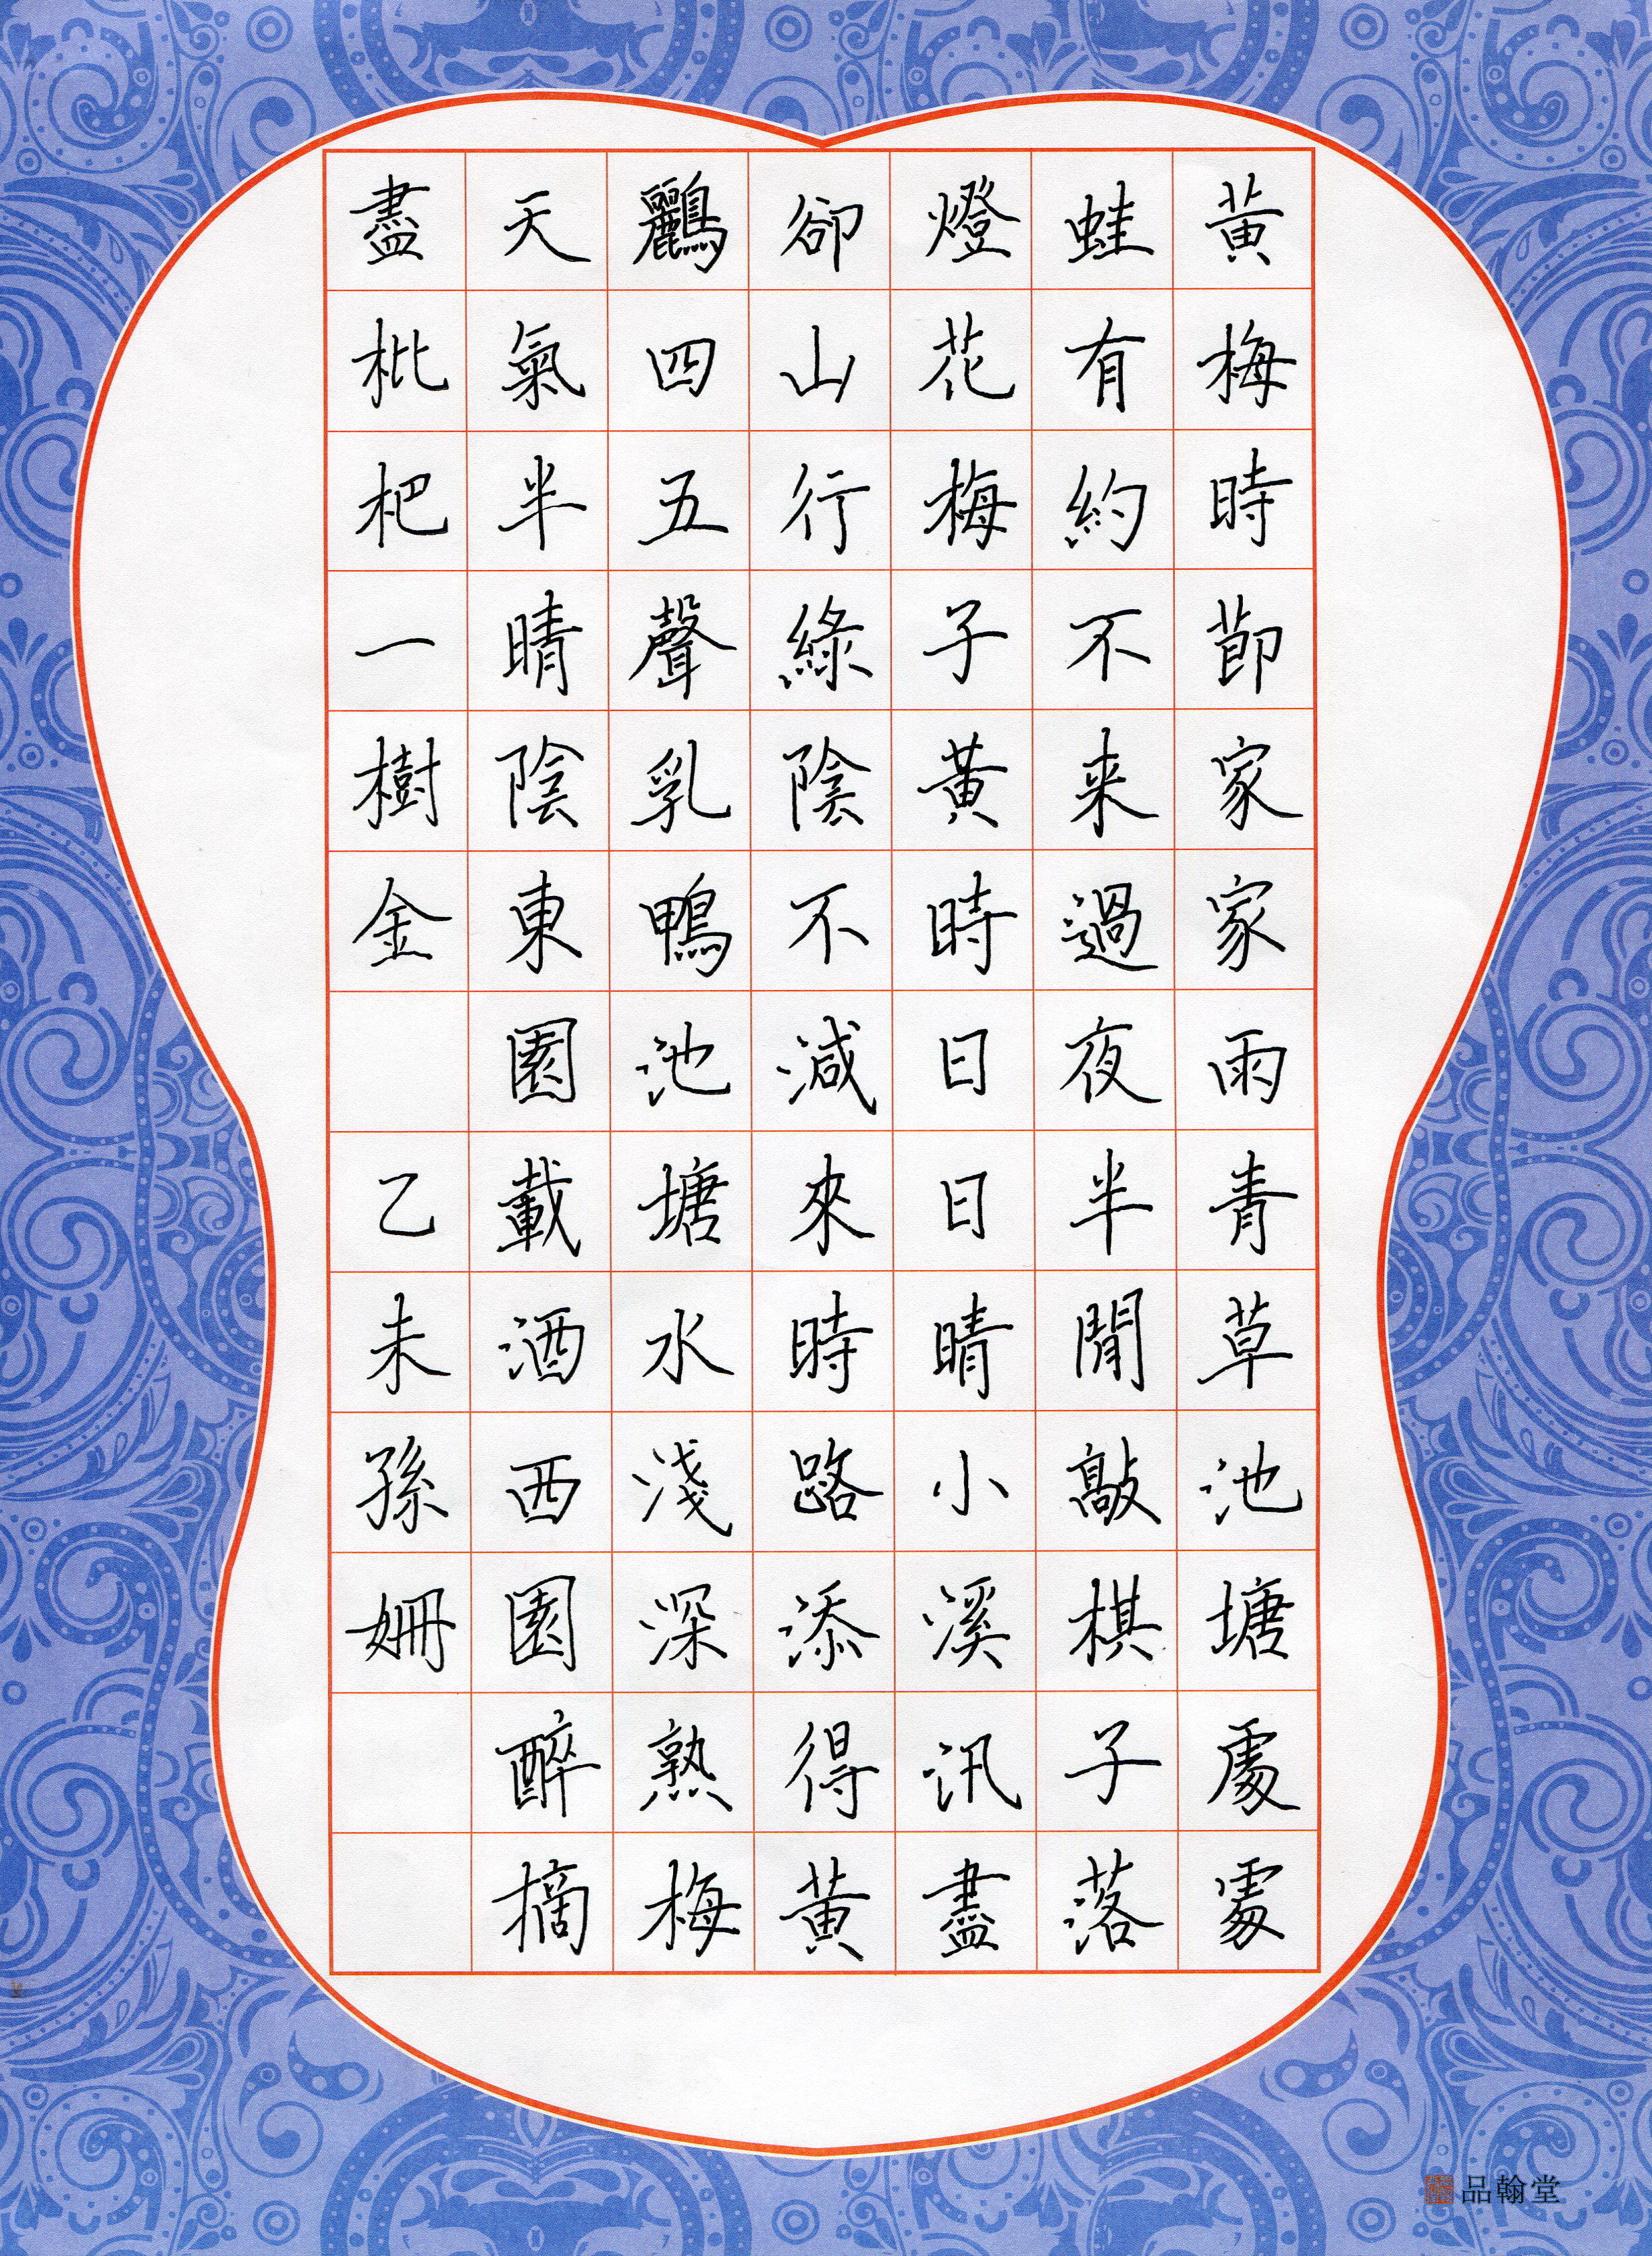 黃梅時節家家雨青草池塘處處
蛙有約不来過夜半閒敲棋子落
燈花梅子黃時日日晴小溪汎盡
卻山行綠陰不減來時路添得黃
鸝四五聲乳鴨池塘水淺深熟梅
天氣半晴陰東園載酒西園醉摘
盡枇杷一樹金 乙未孫姍
品翰堂